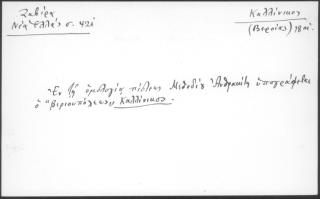 Ζαβίρα
Νέα Ἑλλάς σ. 421
Καλλίνικος
(Βεροίας) 18 αἰ.
Ἐν τῇ ὁμολογίᾳ πίστεως Μεθοδίου Ἀνθρακίτη ὑπογράφεται
ὁ "Βεριουπόλεως Καλλίνικος".